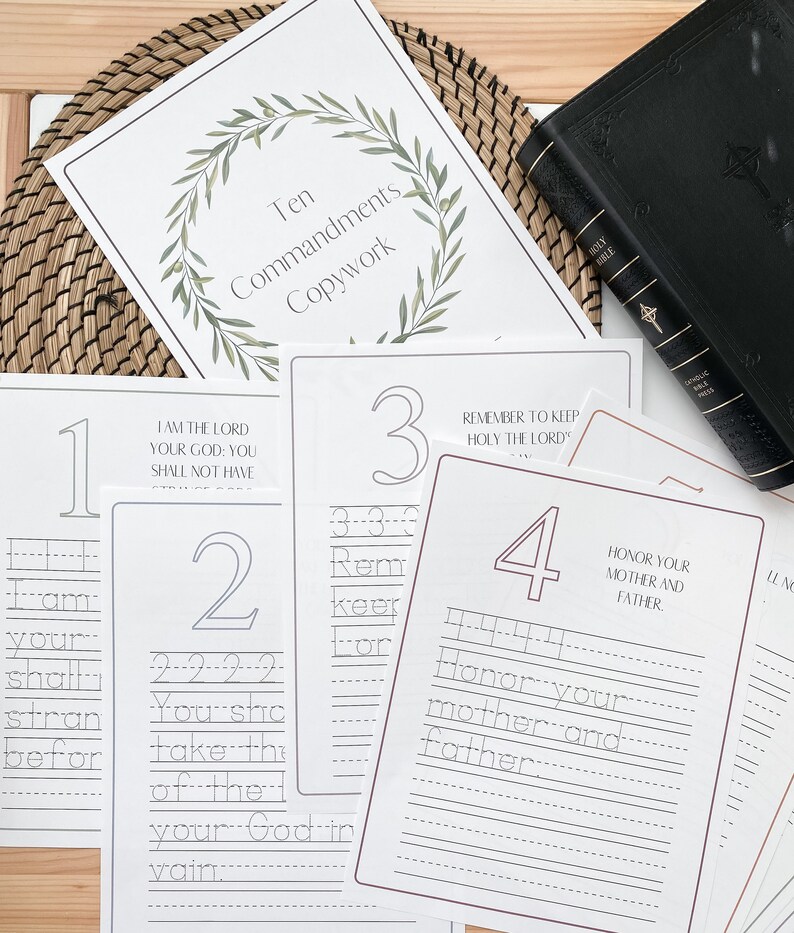 Ten
Commandments
Copywork
HOLY
BIBLE
CATHOLIC
BIBLE
PRESS
1
I AM THE LORD
YOUR GOD: YOU
SHALL NOT HAVE
STRANGE GODS
1 1 1 1
I am
your
shall
stran
befor
2
2 2 2 2
You sho
take the
of the L
your God in
vain.
3
REMEMBER TO KEEP
HOLY THE LORD'S
3 3 3
Rem
keep
Lor
4
HONOR YOUR
MOTHER AND
FATHER.
4 4 4 4
Honor your
mother and
father.
LL NO